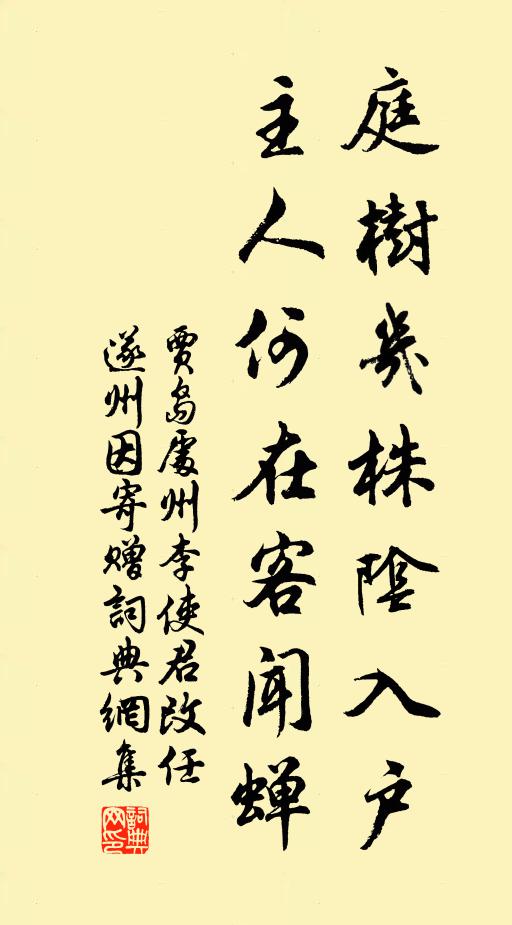 庭樹幾株陰入户
主人何在客闻蝉
賈島處州李使君改任
遂州因寄赠詞典網集
詞典网印